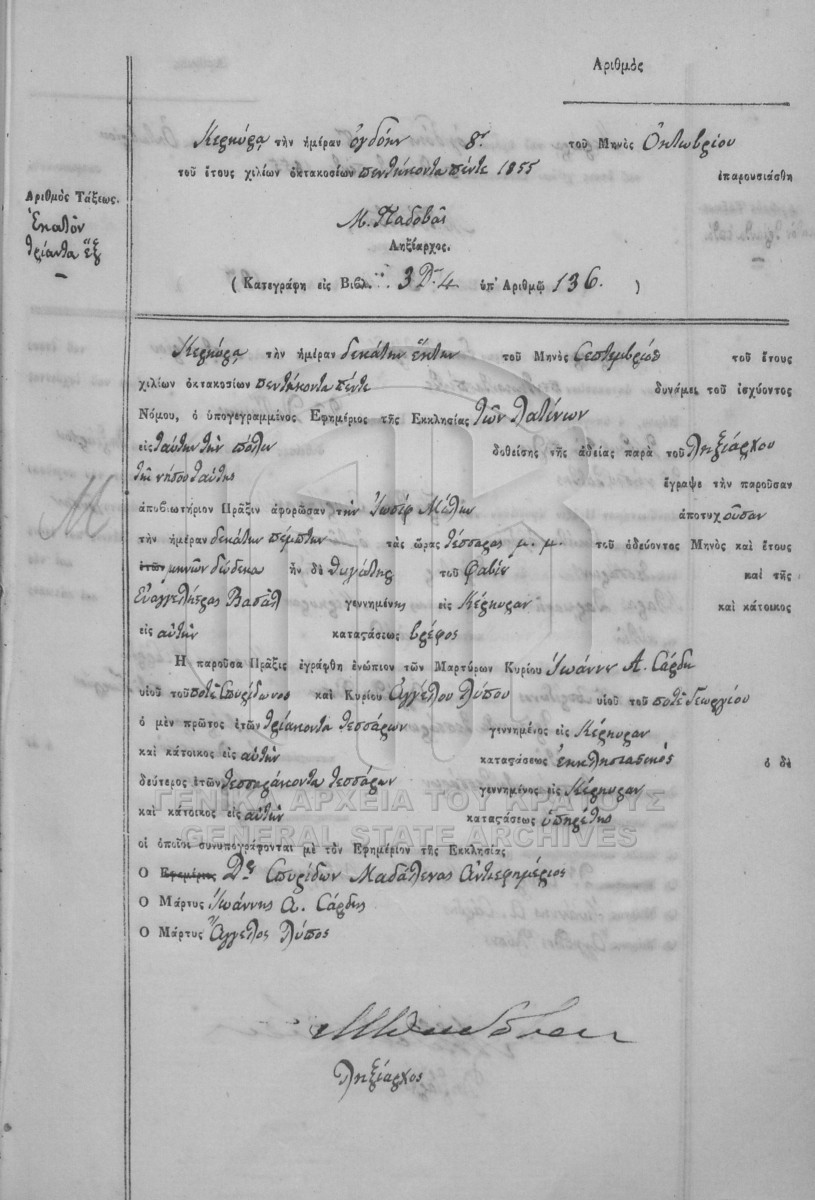 Ἀριθμὸς
Κερκύρᾳ τὴν ἡμέραν ὀγδόην 8ην τοῦ Μηνὸς Ὀκτωβρίου
τοῦ ἔτους χιλίων ὀκτακοσίων πεντήκοντα πέντε 1855 ἐπαρουσιάσθη
Ἀριθμὸς Τάξεως.
Ἑκατὸν
τριάντα ἓξ
Μ. Παδοβᾶς
Ληξίαρχος.
( Κατεγράφη εἰς Βιβλ. 3 Dr. 4 ὑπ' Ἀριθμῷ 136. )
Κερκύρᾳ τὴν ἡμέραν δεκάτην ἕκτην τοῦ Μηνὸς Σεπτεμβρίου τοῦ ἔτους
χιλίων ὀκτακοσίων πεντήκοντα πέντε δυνάμει τοῦ ἰσχύοντος
Νόμου, ὁ ὑπογεγραμμένος Ἐφημέριος τῆς Ἐκκλησίας τῶν Λατίνων
εἰς ταύτην τὴν πόλιν δοθείσης τῆς ἀδείας παρὰ τοῦ Ληξιάρχου
τῆς νήσου ταύτης ἔγραψε τὴν παροῦσαν
ἀποβιωτήριον Πρᾶξιν ἀφορῶσαν τὴν Ἰωσὶφ Μέλιν ἀποτυχοῦσαν
τὴν ἡμέραν δεκάτην πέμπτην τὰς ὥρας τέσσαρας μ. μ. τοῦ ὁδεύοντος Μηνὸς καὶ ἔτους
ἐτῶν μηνῶν δώδεκα ἦν δὲ θυγάτηρ τοῦ Φαβίε καὶ τῆς
Εὐαγγελίστρας Βασὰλ γεννημένης εἰς Κέρκυραν καὶ κάτοικος
εἰς αὐτὴν καταστάσεως βρέφος
Ἡ παροῦσα Πρᾶξις ἐγράφθη ἐνώπιον τῶν Μαρτύρων Κυρίου Ἰωάννου Α. Σάρδη
υἱοῦ τοῦ ποτὲ Σπυρίδωνος καὶ Κυρίου Ἀγγέλου Λύπου υἱοῦ τοῦ ποτὲ Γεωργίου
ὁ μὲν πρῶτος ἐτῶν τριάκοντα τεσσάρων γεννημένος εἰς Κέρκυραν
καὶ κάτοικος εἰς αὐτὴν καταστάσεως ἐκκλησιαστικός ὁ δὲ
δεύτερος ἐτῶν τεσσαράκοντα τεσσάρων γεννημένος εἰς Κέρκυραν
καὶ κάτοικος εἰς αὐτὴν καταστάσεως ὑπηρέτης
οἱ ὁποῖοι συνυπογράφονται μὲ τὸν Ἐφημέριον τῆς Ἐκκλησίας
Ὁ Ἐφημέριος Dn Σπυρίδων Μαδάλενας Ἀντεφημέριος
Ὁ Μάρτυς Ἰωάννης Α. Σάρδης
Ὁ Μάρτυς Ἄγγελος Λύπος
Ληξίαρχος
ΓΕΝΙΚΑ ΑΡΧΕΙΑ ΤΟΥ ΚΡΑΤΟΥΣ
GENERAL STATE ARCHIVES